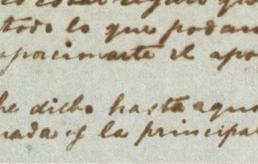 todo lo que podam
aporcimarte el apo
he dicho hasta aqu
nada y la principal